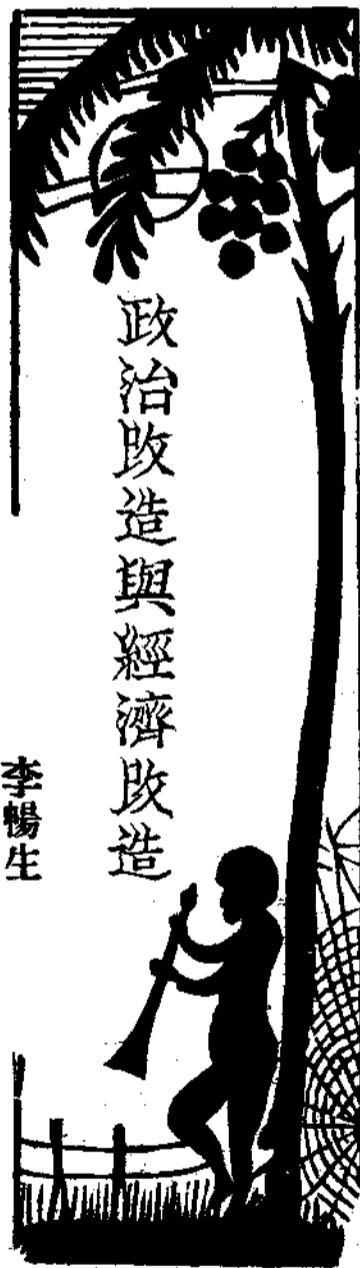 政治改造與經濟改造
李暢生